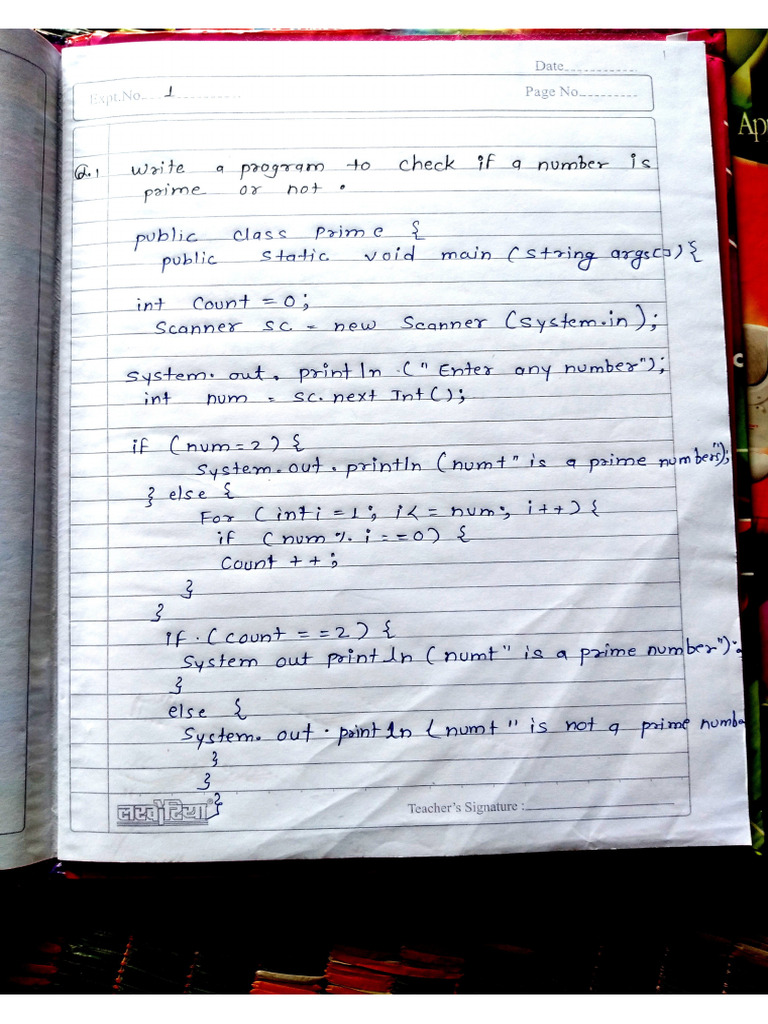 Date
Expt.No. 1
Page No.
Q.1 Write a program to check if a number is
prime or not.
public class Prime {
public static void main (string args[]) {
int count = 0;
Scanner sc = new Scanner (system.in);
system. out. println .(" Enter any number");
int num = sc. next Int();
if (num = 2) {
System.out.println (num+" is a prime numbers");
} else {
For (int i = 1; i <= num; i++) {
if (num % i == 0) {
Count ++;
}
}
if.(count == 2) {
System out println (num+" is a prime number");
}
else {
System. out. println (num+ " is not a prime numbe
}
}
}
Teacher's Signature :